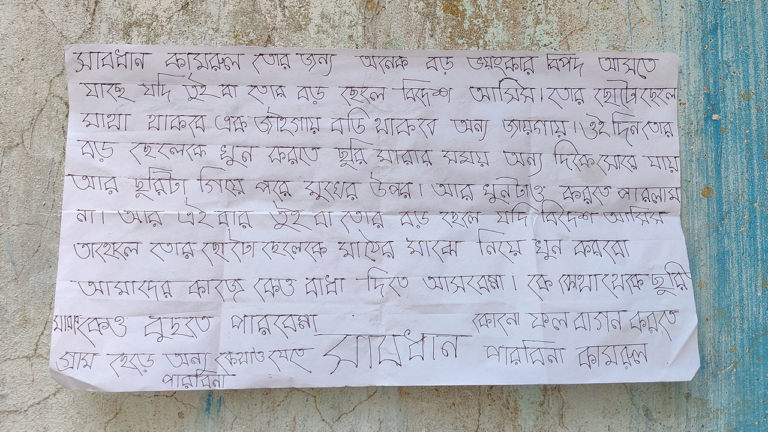 সাবধান কামরুল তোর জন্য অনেক বড় ভয়ংকার বিপদ আসতে
যাচ্ছে যদি তুই বা তোর বড় ছেলে বিদেশ আসিস। তোর ছোটো ছেলে
মাথা থাকবে এক জাইগায় বডি থাকবে অন্য জায়গায়। ওই দিন তোর
বড় ছেলেকে খুন করতে ছুরি মারার সময় অন্য দিকে সরে যায়
আর ছুরিটা গিয়ে পরে মুখের উপর। আর খুনটাও করতে পারলাম
না। আর এই বার তুই বা তোর বড় ছেলে যদি বিদেশ আসিস
তাহেলে তোর ছোটো ছেলেকে মাঠের মাঝে নিয়ে খুন করবো
আমাদের কাজে কেও বাধা দিতে আসবেনা। কে কোথা থেকে ছুরি
মারছে কেও বুঝতে পারবেনা কোনো ফল বাগান করতে
গ্রাম ছেড়ে অন্য কোথাও যেতে সাবধান পারবিনা কামরুল
পারবিনা